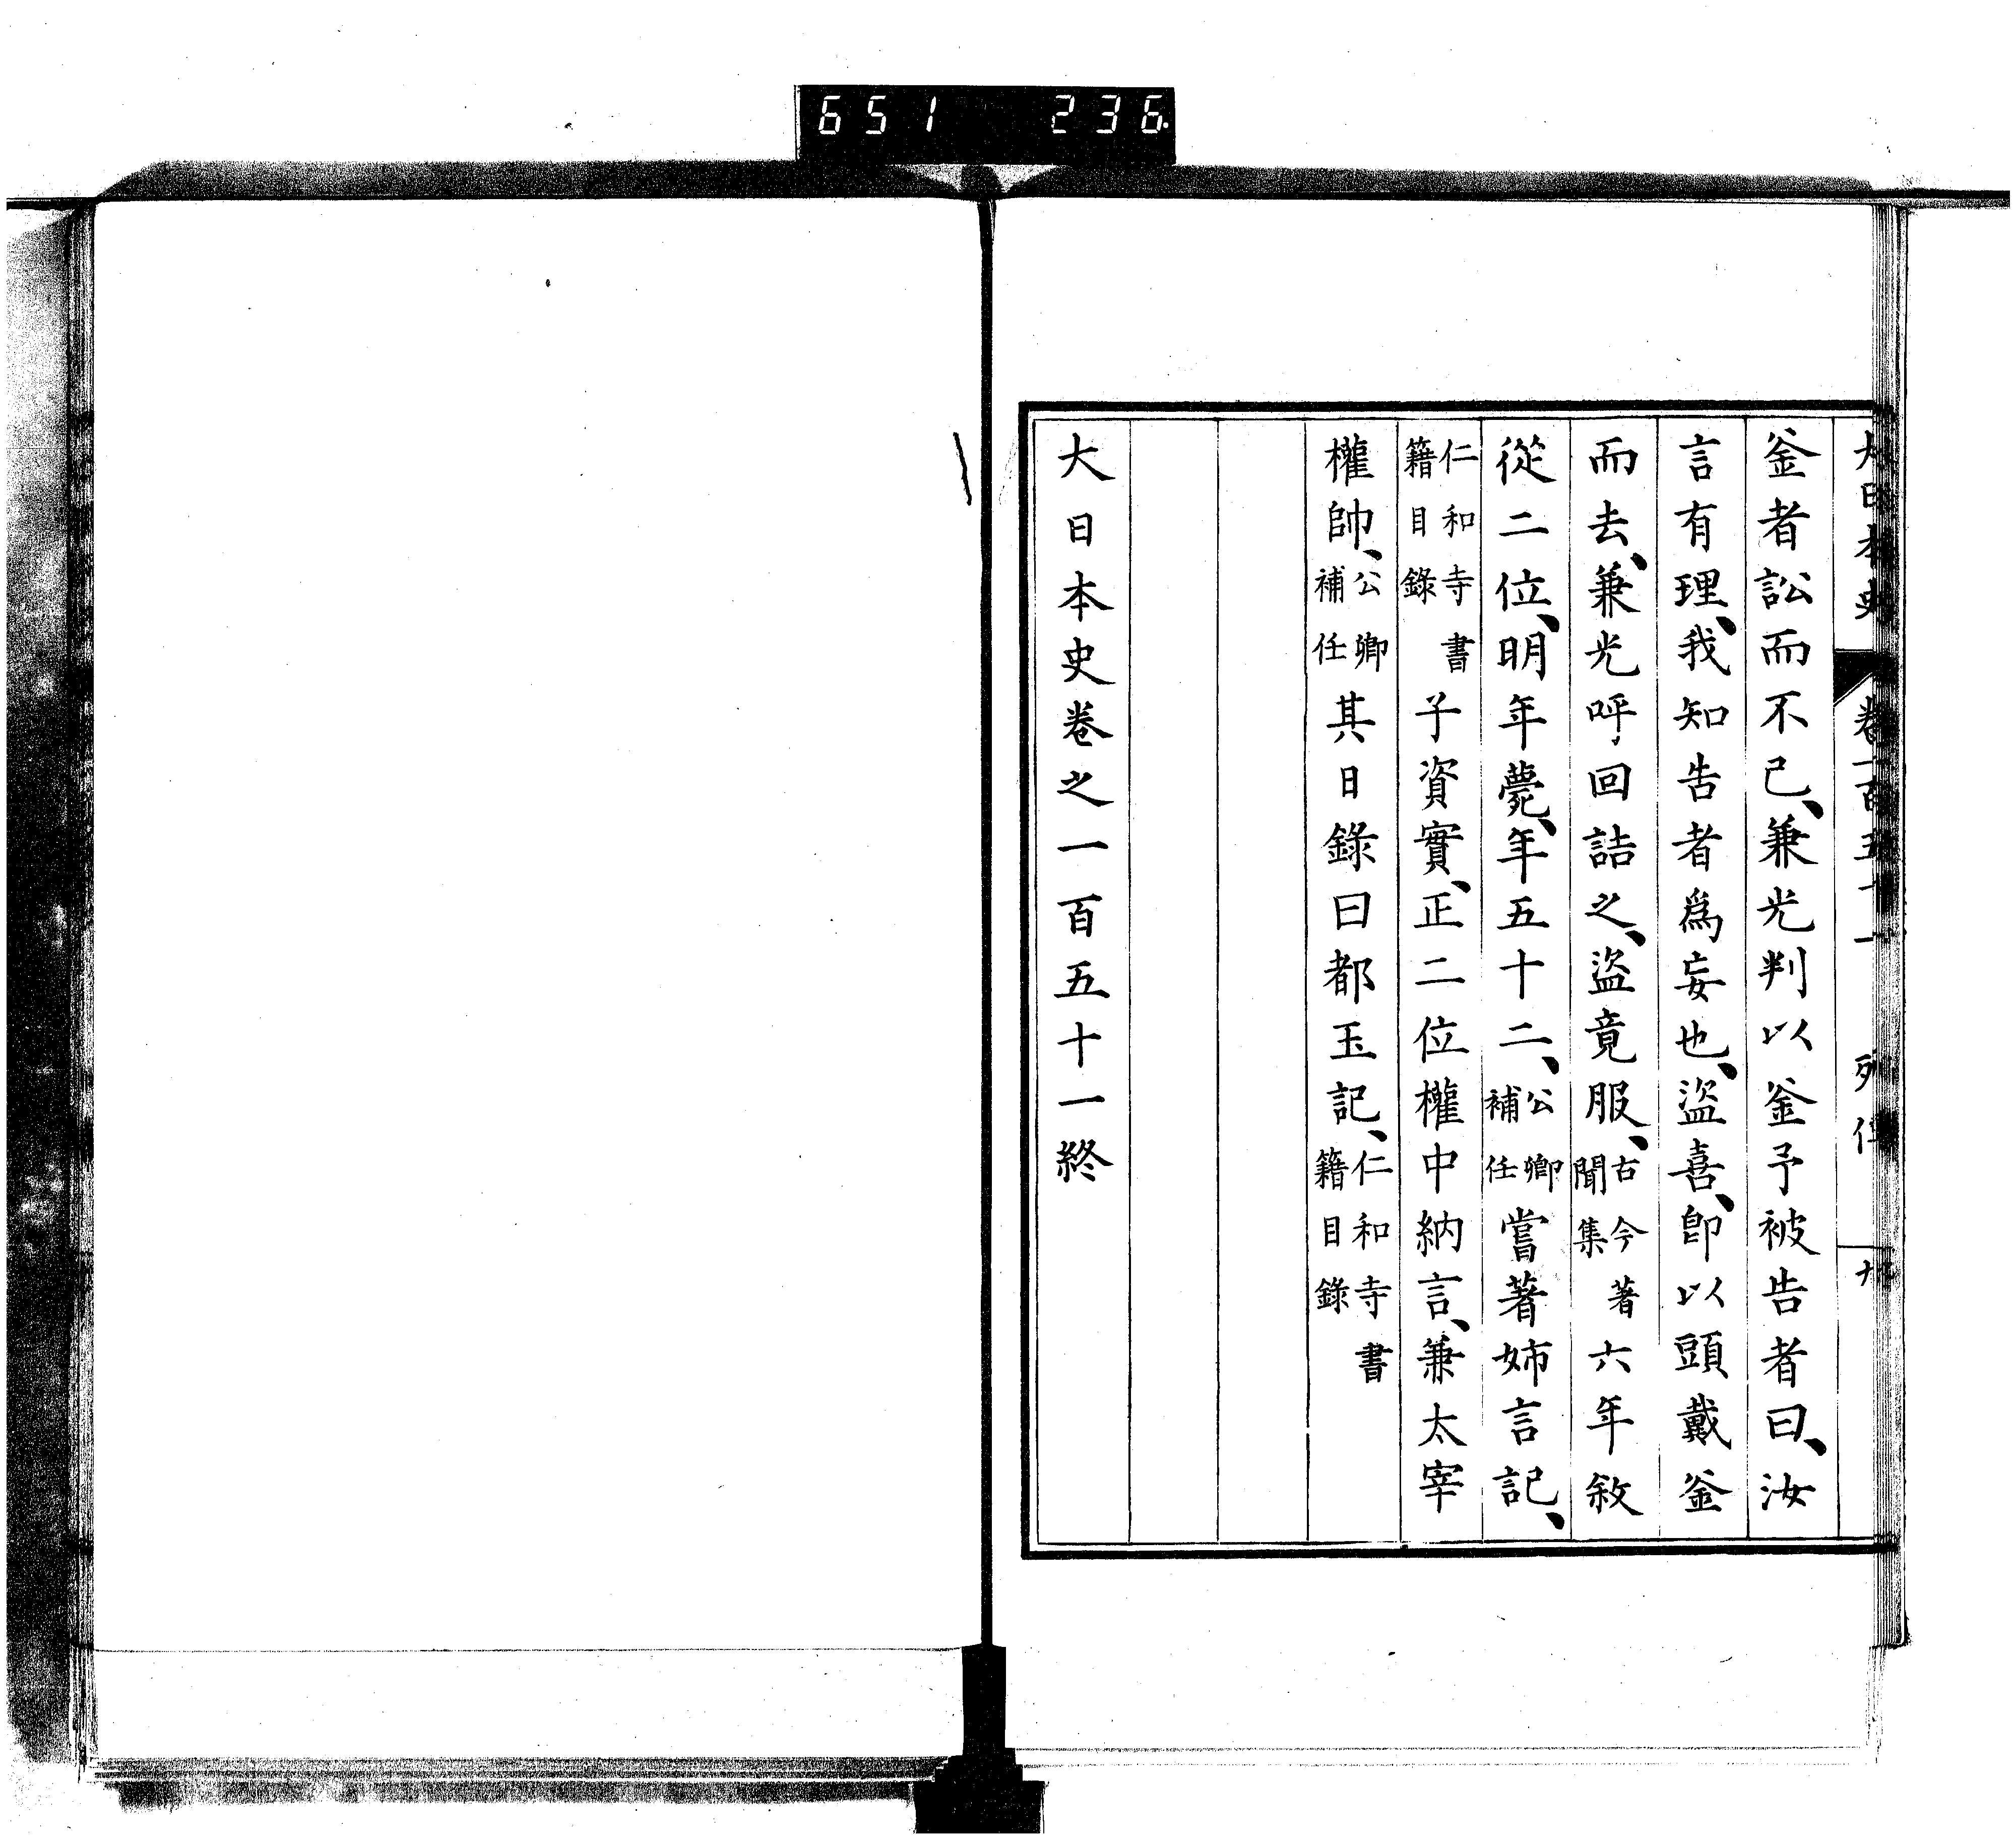 651 236
大日本史 卷一百五十一 列傳 十九
釜者訟而不已、兼光判以釜予被告者曰、汝
言有理、我知告者爲妄也、盜喜、卽以頭戴釜
而去、兼光呼回詰之、盜竟服、古今著聞集六年敘
從二位、明年薨、年五十二、公卿補任嘗著姉言記、
仁和寺書籍目錄子資實、正二位權中納言、兼太宰
權帥、公卿補任其日錄曰都玉記、仁和寺書籍目錄
大日本史卷之一百五十一終